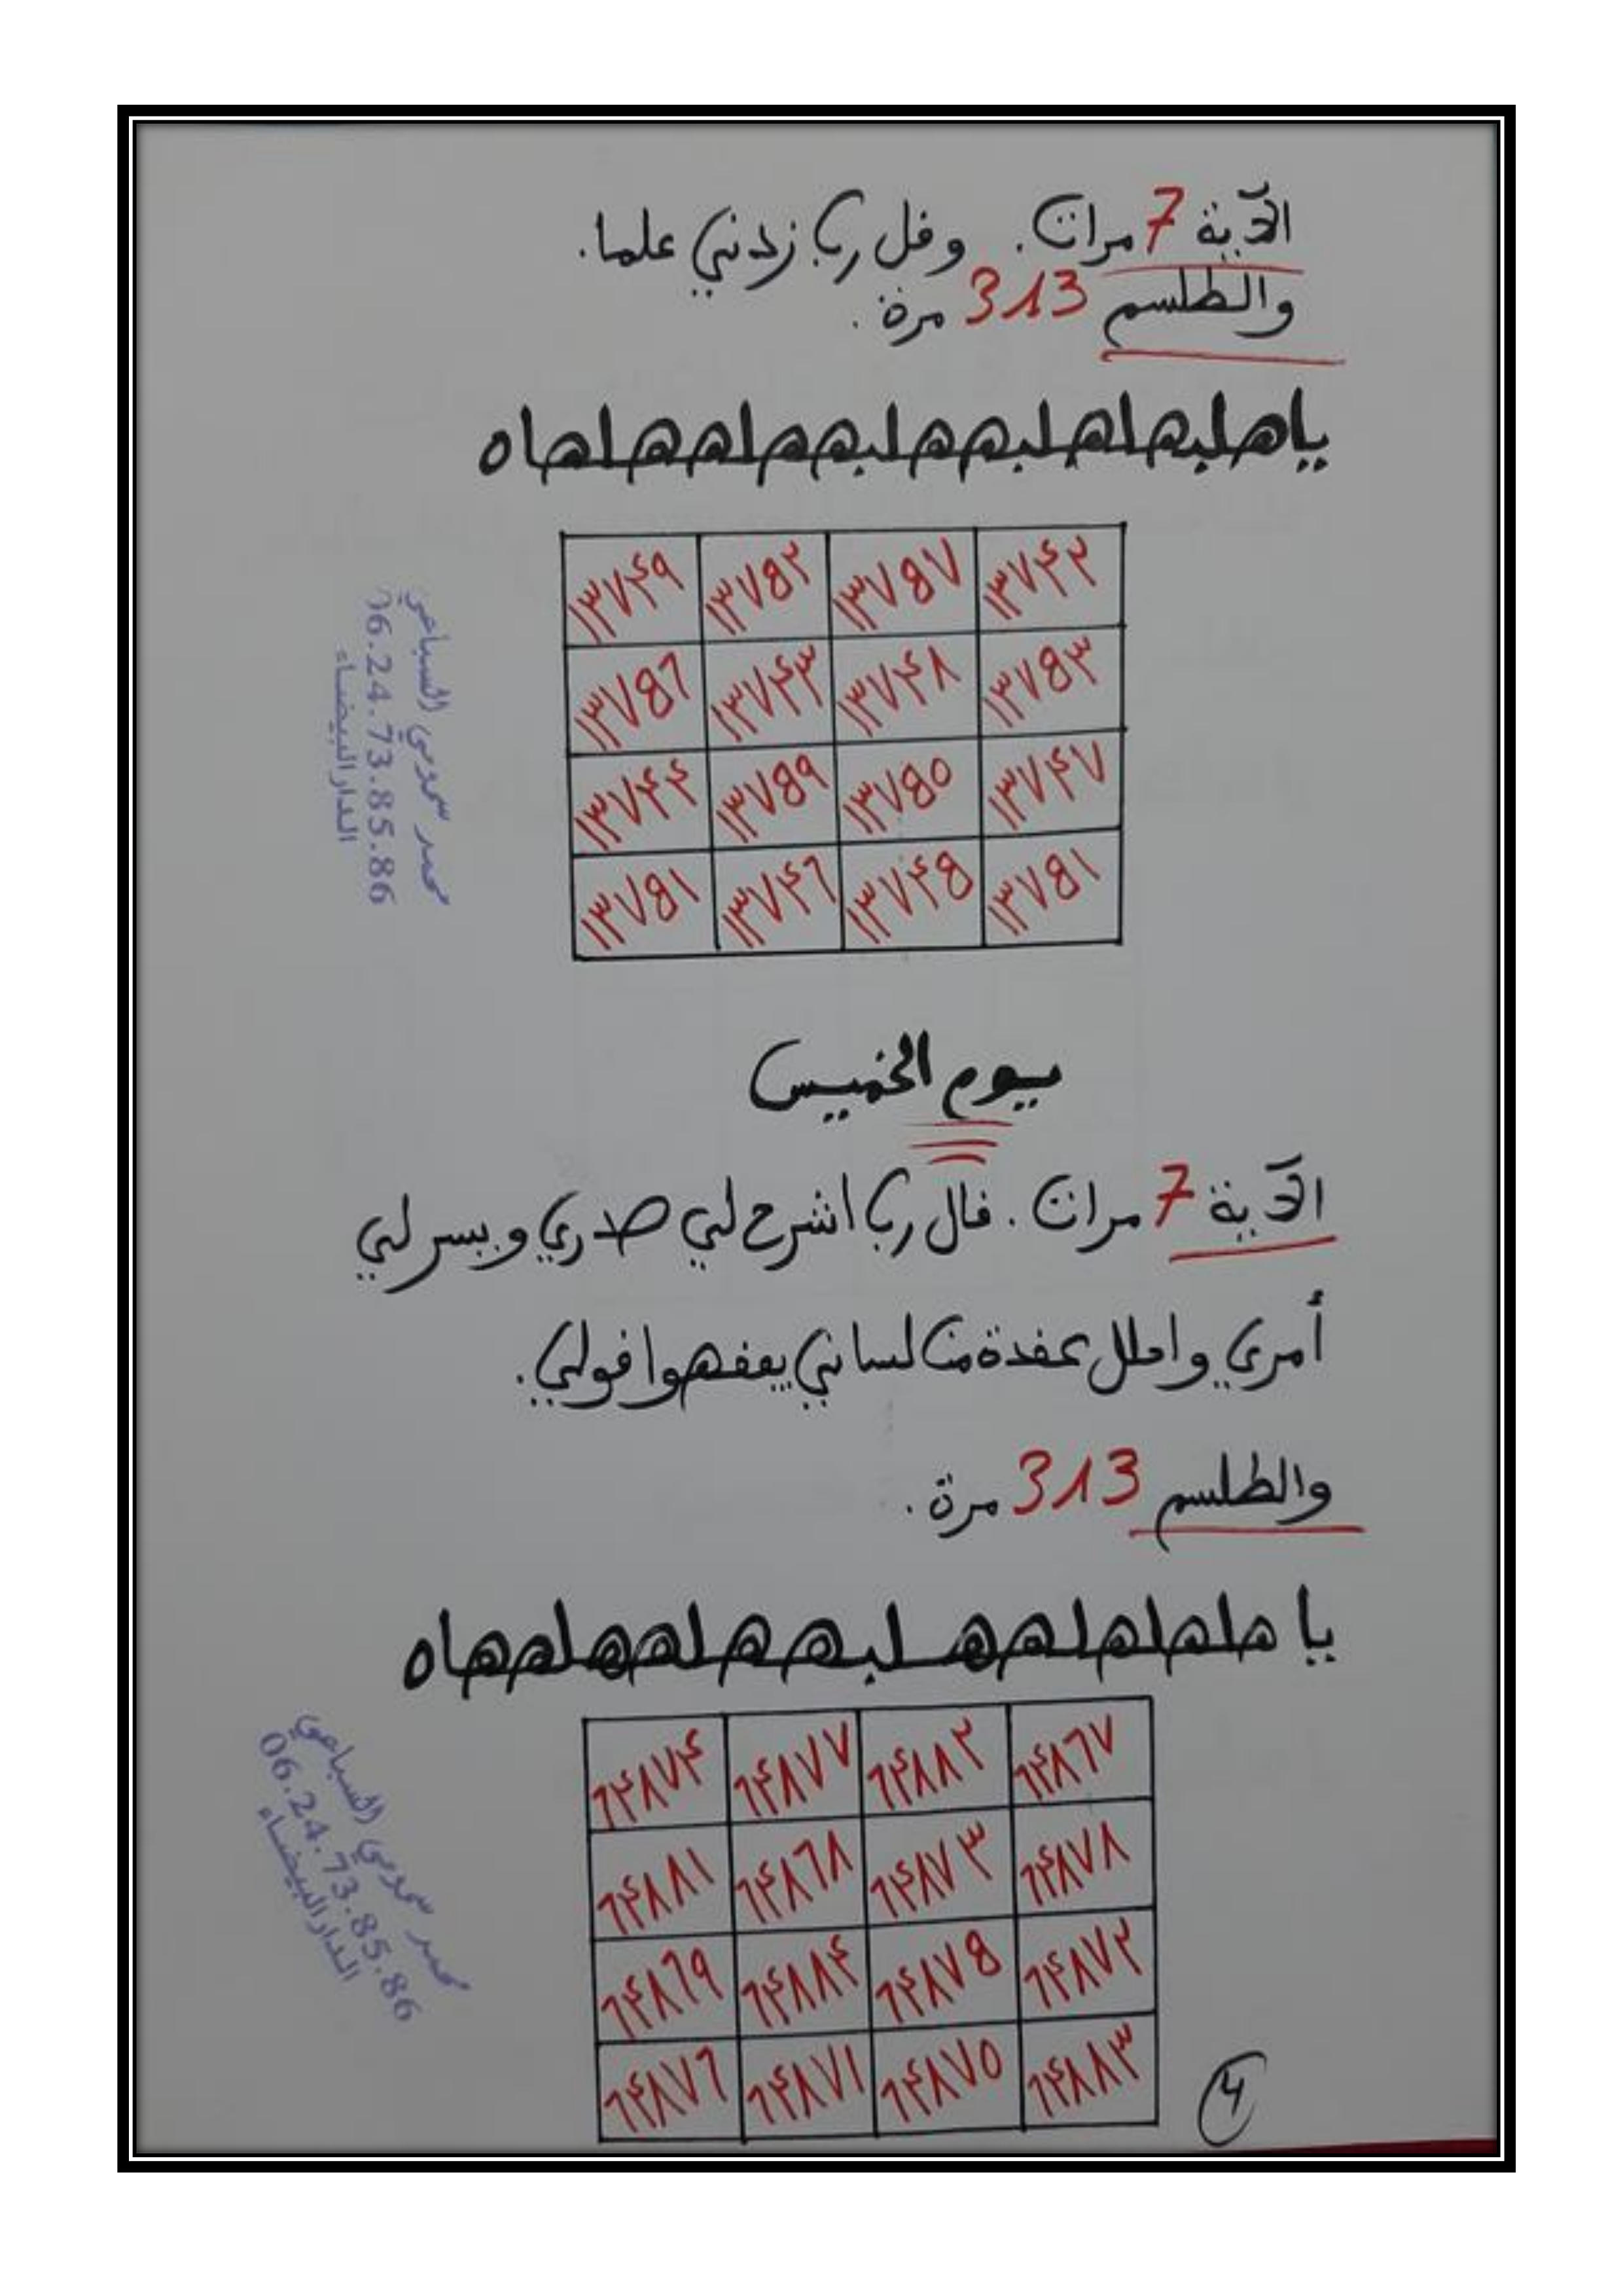 الآية 7 مرات. وقل رب زدني علما.
والطلسم 313 مرة.
١٣٧٤٩ ١٣٧٥٢ ١٣٧٥٧ ١٣٧٤٢
١٣٧٥٦ ١٣٧٤٣ ١٣٧٤٨ ١٣٧٥٣
١٣٧٤٤ ١٣٧٥٩ ١٣٧٥٠ ١٣٧٤٧
١٣٧٥١ ١٣٧٤٦ ١٣٧٤٥ ١٣٧٥١
06.24.73.85.86
الدار البيضاء
يوم الخميس
الآية 7 مرات. قال رب اشرح لي صدري ويسر لي
أمري واحلل عقدة من لساني يفقهوا قولي.
والطلسم 313 مرة.
٦٤٨٧٤ ٦٤٨٧٧ ٦٤٨٨٢ ٦٤٨٦٧
٦٤٨٨١ ٦٤٨٦٨ ٦٤٨٧٣ ٦٤٨٧٨
٦٤٨٦٩ ٦٤٨٨٤ ٦٤٨٧٥ ٦٤٨٧٢
٦٤٨٧٦ ٦٤٨٧١ ٦٤٨٧٥ ٦٤٨٨٣
06.24.73.85.86
الدار البيضاء
4